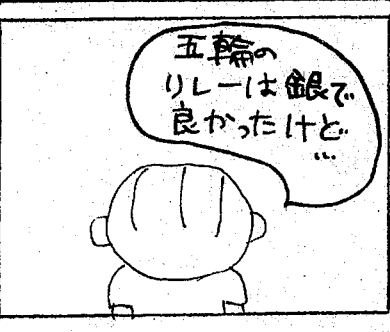 五輪の
リレーは銀で
良かったけど
…